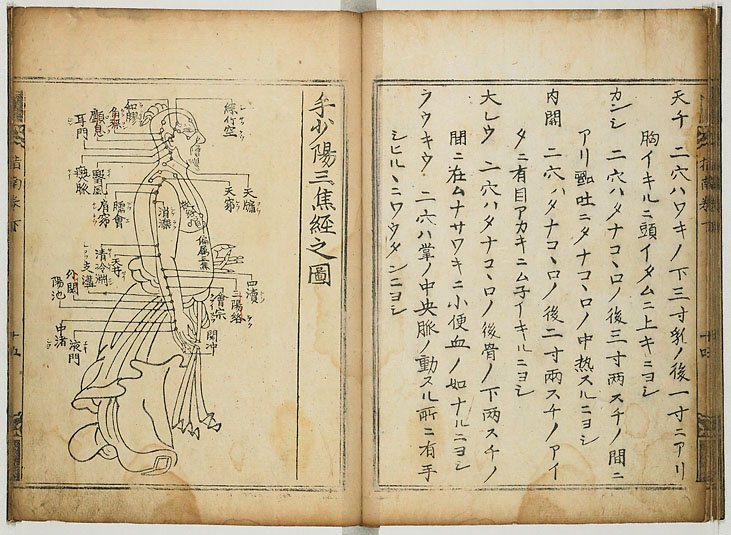 天チ 二穴ハワキノ下三寸乳ノ後一寸ニアリ
胸イキルニ頭イタムニ上キニヨシ
カンシ 二穴ハタナコヽロノ後三寸両スチノ間ニ
アリ 吐ニタナコヽロノ中热スルニヨシ
内関 二穴ハタナコヽロノ後二寸両スチノアイ
タニ有目アカキニム子イキルニヨシ
大レウ 二穴ハタナコヽロノ後骨ノ下两スチノ
間ニ在ムナサワキニ小便血ノ如ナルニヨシ
ラウキウ 二穴ハ掌ノ中央脉ノ動スル所ニ有手
シヒルヽニワウタンニヨシ
手少陽三焦経之圖
絲竹空
和髎
角孫
顱息
耳門
瘈脉
翳風
天牖
天窌
肩窌
臑會
消濼
天井
清冷淵
四瀆
三陽絡
會宗
支溝
外關
陽池
中渚
液門
関冲
偏属三焦
指南巻下
十五